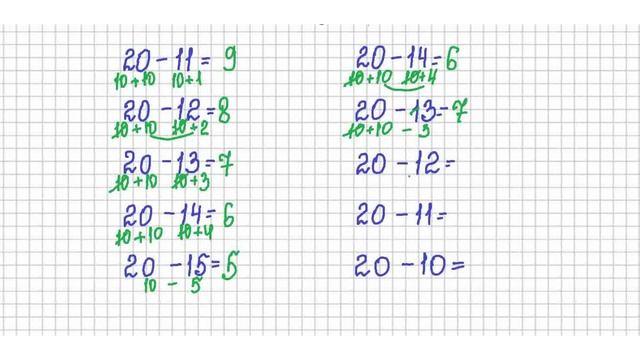 20 - 11 = 9
10 + 10 10 + 1
20 - 12 = 8
10 + 10 10 + 2
20 - 13 = 7
10 + 10 10 + 3
20 - 14 = 6
10 + 10 10 + 4
20 - 15 = 5
10 - 5
20 - 14 = 6
10 + 10 10 + 4
20 - 13 = 7
10 + 10 - 3
20 - 12 =
20 - 11 =
20 - 10 =